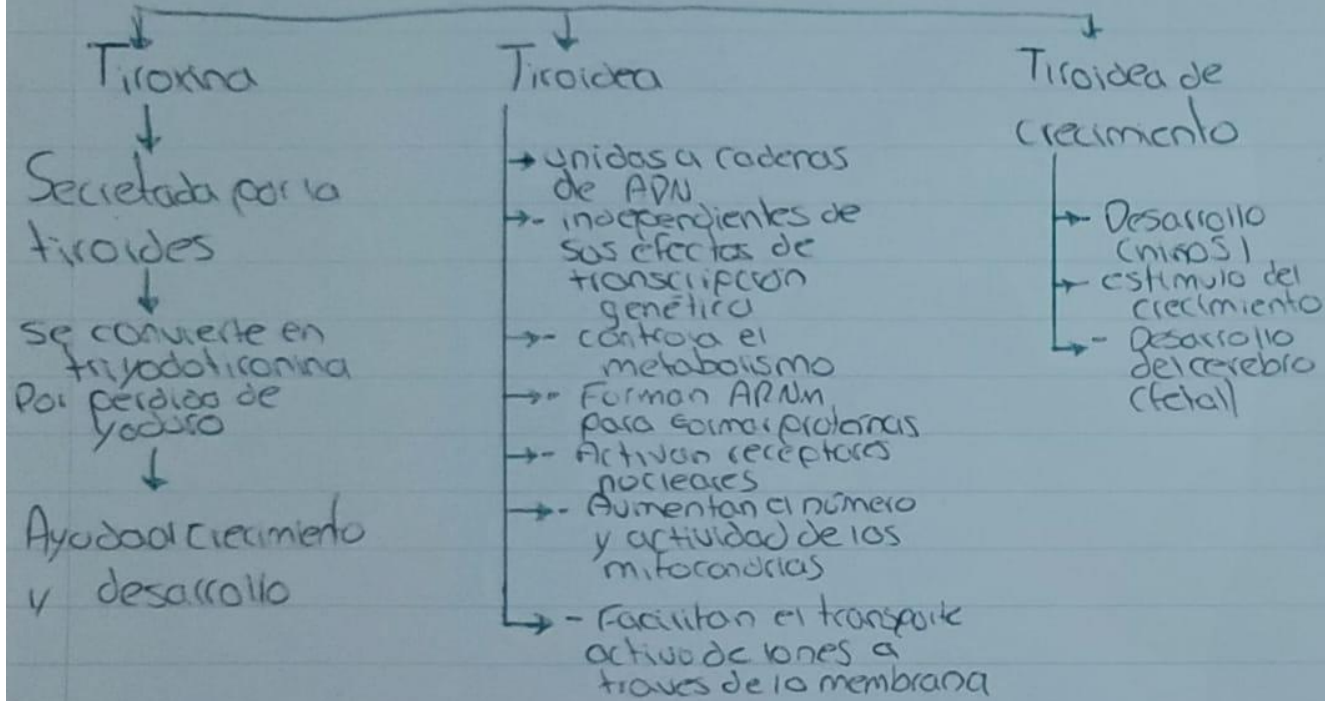 Tiroxina
Secretada por la
tiroides
se convierte en
triyodotironina
Por perdida de
yoduro
Ayuda al crecimiento
y desarrollo
Tiroidea
- unidas a cadenas
de ADN
- independientes de
sus efectos de
transcripcion
genética
- controla el
metabolismo
- Forman ARNm
para formar proteinas
- Activan receptores
nucleares
- Aumentan el número
y actividad de las
mitocondrias
- Facilitan el transporte
activo de iones a
traves de la membrana
Tiroidea de
crecimiento
- Desarrollo
(niños)
- estimulo del
crecimiento
- Desarrollo
del cerebro
(fetal)